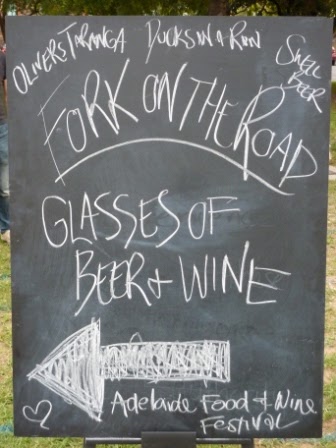 OLIVERS TARANGA DUCKS IN A ROW SWELL BEER
FORK ON THE ROAD
GLASSES OF
BEER + WINE
Adelaide Food + Wine
Festival